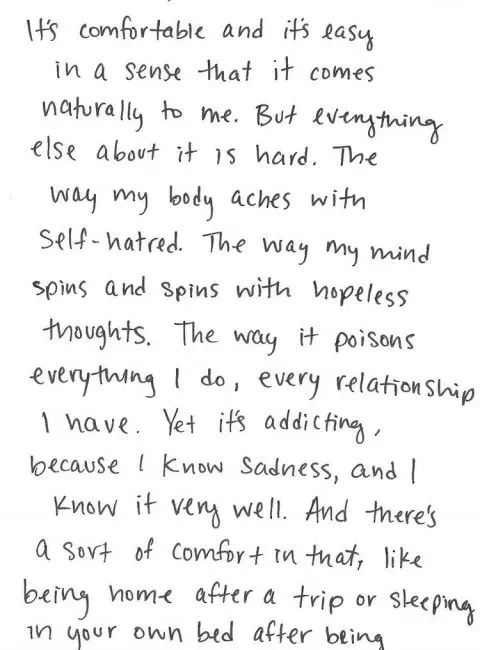 It's comfortable and it's easy
in a sense that it comes
naturally to me. But everything
else about it is hard. The
way my body aches with
self-hatred. The way my mind
spins and spins with hopeless
thoughts. The way it poisons
everything I do, every relationship
I have. Yet it's addicting,
because I know sadness, and I
know it very well. And there's
a sort of comfort in that, like
being home after a trip or sleeping
in your own bed after being